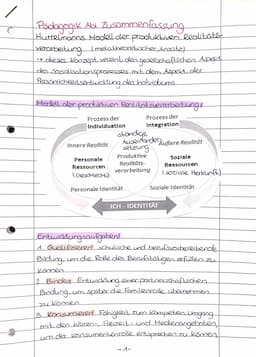 Pädagogik Abi Zusammenfassung
Hurrelmanns Modell der produktiven Realitäts-
verarbeitung (metatheoretischer Ansatz)
→ dieses Konzept vereint den gesellschaftlichen Aspekt
des Sozialisationsprozesses mit dem Aspekt der
Persönlichkeitsentwicklung des Individuums
Modell der produktiven Realitätsverarbeitung:
Prozess der Individuation
Prozess der Integration
ständige
Auseinander-
setzung
Innere Realität
Äußere Realität
Personale
Ressourcen
(Geschlecht)
Produktive
Realitäts-
verarbeitung
Soziale
Ressourcen
(soziale Herkunft)
Personale Identität
Soziale Identität
ICH - IDENTITÄT
Entwicklungsaufgaben:
1. Qualifizieren: schulische und berufsvorbereitende
Bildung, um die Rolle des Berufstätigen erfüllen zu
können
2. Binden: Entwicklung einer partnerschaftlichen
Bindung, um später die Familienrolle übernehmen
zu können
3. Konsumieren: Fähigkeit zum kompeten Umgang
mit den Waren-, Freizeit- und Medienangeboten,
um der Konsumentenrolle entsprechen zu können
-1-